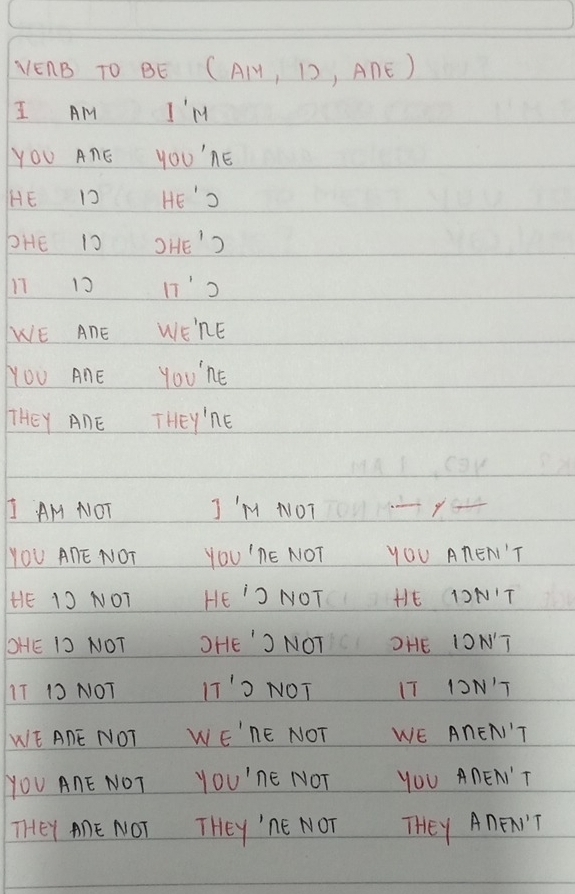 VERB TO BE (AM, IS, ARE)
I AM I'M
YOU ARE YOU'RE
HE IS HE'S
SHE IS SHE'S
IT IS IT'S
WE ARE WE'RE
YOU ARE YOU'RE
THEY ARE THEY'RE
I AM NOT I'M NOT — / —
YOU ARE NOT YOU'RE NOT YOU AREN'T
HE IS NOT HE'S NOT HE ISN'T
SHE IS NOT SHE'S NOT SHE ISN'T
IT IS NOT IT'S NOT IT ISN'T
WE ARE NOT WE'RE NOT WE AREN'T
YOU ARE NOT YOU'RE NOT YOU AREN'T
THEY ARE NOT THEY'RE NOT THEY AREN'T